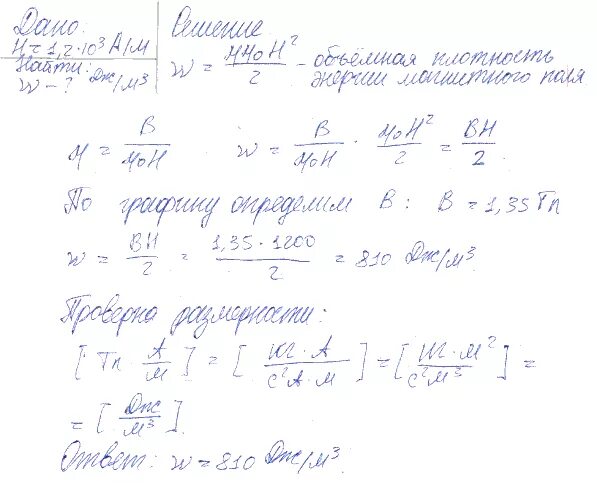 Дано:
H = 1,2·10³ А/м
Найти:
w - ? Дж/м³
Решение
w = μμ₀H²/2 - объёмная плотность энергии магнитного поля
μ = B/μ₀H w = B/μ₀H · μ₀H²/2 = BH/2
По графику определим B: B = 1,35 Тл
w = BH/2 = 1,35·1200/2 = 810 Дж/м³
Проверка размерности:
[Тл · А/м] = [кг·А/с²А·м] = [кг·м²/с²м³] =
= [Дж/м³]
Ответ: w = 810 Дж/м³